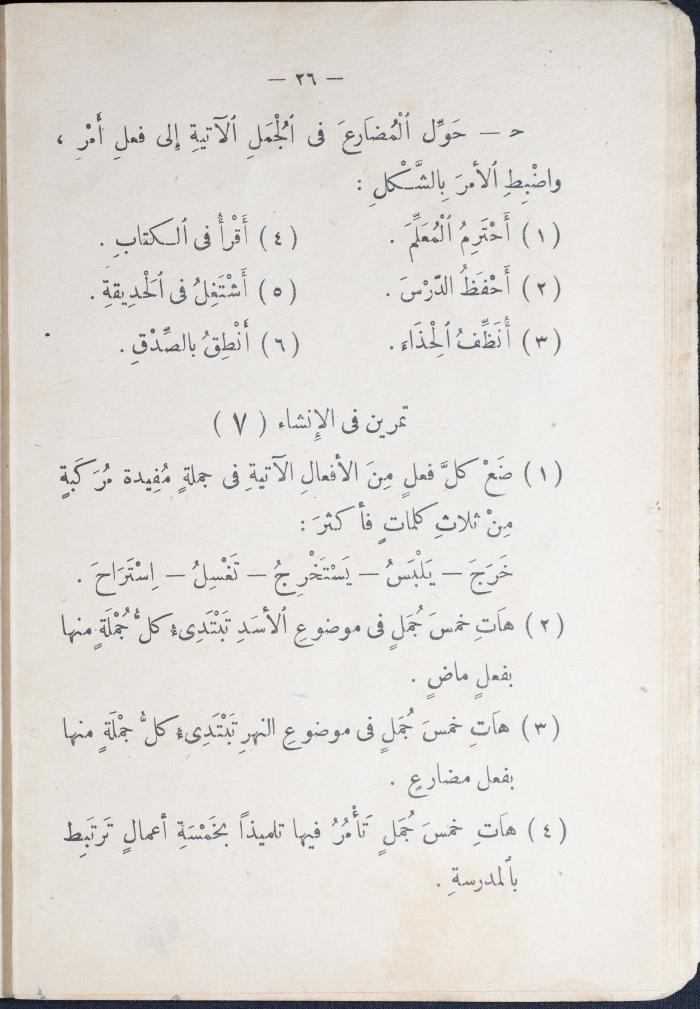 — ٢٦ —
ﺣ — حَوِّل ٱلْمُضَارِعَ فى ٱلْجُمَلِ ٱلْآتيةِ إلى فعلِ أَمْرٍ ،
واضْبِطِ ٱلأمرَ بِالشَّكْلِ :
( ١ ) أَحْتَرِمُ ٱلْمُعَلِّمَ . ( ٤ ) أَقْرَأُ فى ٱلكتابِ .
( ٢ ) أَحْفَظُ الدّرْسَ . ( ٥ ) أَشْتَغِلُ فى ٱلحَدِيقةِ .
( ٣ ) أُنَظِّفُ ٱلحِذَاءَ . ( ٦ ) أَنْطِقُ بالصِّدْقِ .
تمرين فى الإِنشاء ( ٧ )
( ١ ) ضَعْ كلَّ فعلٍ مِنَ الأفعالِ الآتيةِ فى جملةٍ مُفِيدة مُرَكبةٍ
مِنْ ثلاثِ كلماتٍ فأكثرَ :
خَرَجَ — يَلْبَسُ — يَسْتَخْرِجُ — تَغْسِلُ — اِسْتَرَاحَ .
( ٢ ) هَاتِ خمسَ جُمَلٍ فى موضوعِ ٱلأسَدِ تَبْتَدِىءُ كلُّ جُمْلَةٍ منها
بفعلٍ ماضٍ .
( ٣ ) هاَتِ خمسَ جُمَلٍ فى موضوعِ النهرِ تَبْتَدِىءُ كلُّ جمْلَةٍ منها
بفعل مضارعٍ .
( ٤ ) هاَتِ خمسَ جُمَلٍ تَأْمُرُ فيها تلميذاً بخَمْسَةِ أعمالٍ تَرتَبِط
بٱلمدرسةِ .